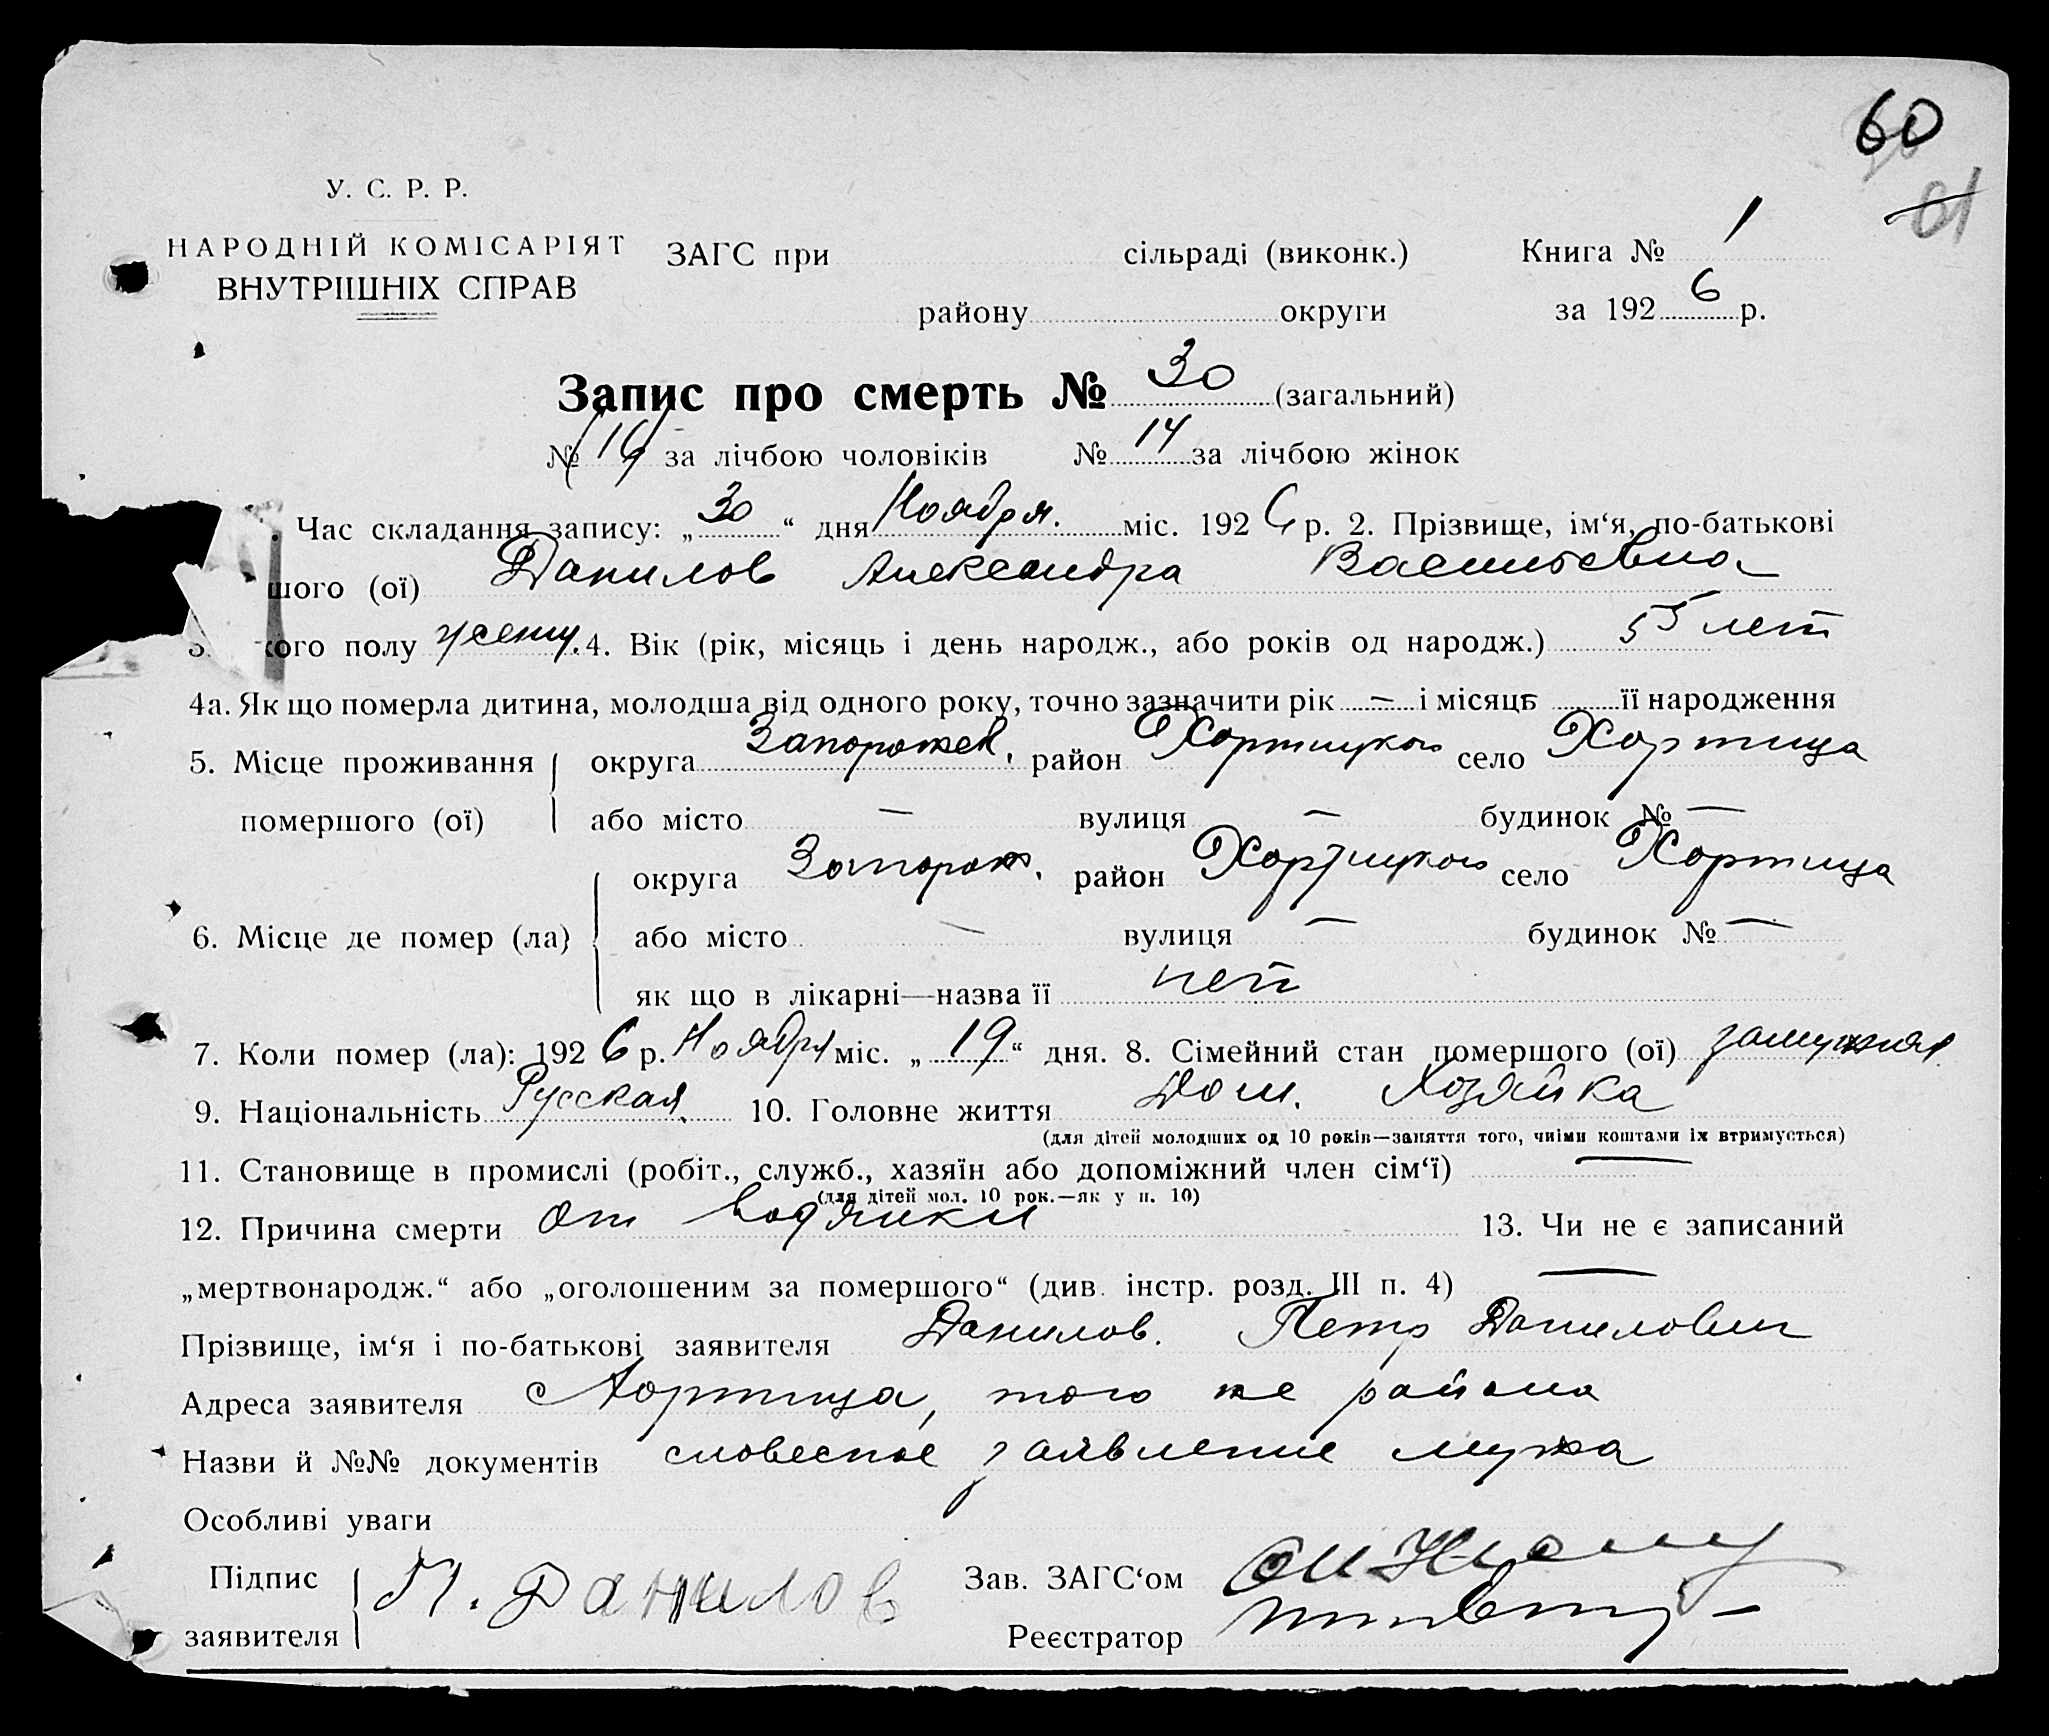 60
61
У. С. Р. Р.
НАРОДНІЙ КОМІСАРІЯТ
ВНУТРІШНІХ СПРАВ
ЗАГС при сільраді (виконк.) Книга № 1
району округи за 1926 р.
Запис про смерть № 30 (загальний)
№ (16) за лічбою чоловіків № 14 за лічбою жінок
Час складання запису: „30“ дня Ноября. міс. 1926 р. 2. Прізвище, ім‘я, по-батькові
шого (ої) Данилов Александра Васильевна
3. кого полу женщ. 4. Вік (рік, місяць і день народж., або років од народж.) 55 лет
4а. Як що померла дитина, молодша від одного року, точно зазначити рік — і місяць її народження
5. Місце проживання округа Запорожск. район Хортицкого село Хортица
помершого (ої) або місто — вулиця — будинок № —
округа Запорож. район Хортицкого село Хортица
6. Місце де помер (ла) або місто — вулиця — будинок № —
як що в лікарні—назва її нет
7. Коли помер (ла): 1926 р. Ноября міс. „19“ дня. 8. Сімейний стан помершого (ої) замужняя
9. Національність Русская 10. Головне життя Дом. Хозяйка
(для дітей молодших од 10 років—заняття того, чиїми коштами їх втримується)
11. Становище в промислі (робіт., служб., хазяїн або допоміжний член сім‘ї) —
(для дітей мол. 10 рок.—як у п. 10)
12. Причина смерти От водянки 13. Чи не є записаний
„мертвонародж.“ або „оголошеним за помершого“ (див. інстр. розд. III п. 4) —
Прізвище, ім‘я і по-батькові заявителя Данилов. Петр Данилович
Адреса заявителя Хортица, того же района
Назви й №№ документів словесное заявление мужа
Особливі уваги
Підпис П. Данилов Зав. ЗАГС‘ом
заявителя Реєстратор